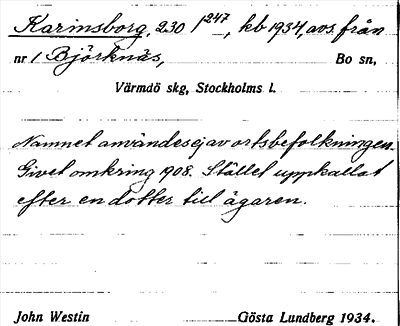 Karinsborg, 230 1 247, kb 1934, avs. från
nr 1 Björknäs, Bo sn,
Värmdö skg, Stockholms l.
Namnet användes ej av ortsbefolkningen.
Givet omkring 1908. Stället uppkallat
efter en dotter till ägaren.
John Westin Gösta Lundberg 1934.